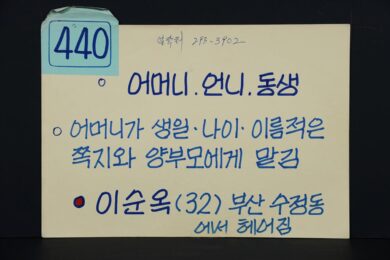 440
연락처 293-3902
어머니.언니.동생
어머니가 생일·나이·이름적은
쪽지와 양부모에게 맡김
이순옥(32) 부산 수정동
에서 헤어짐